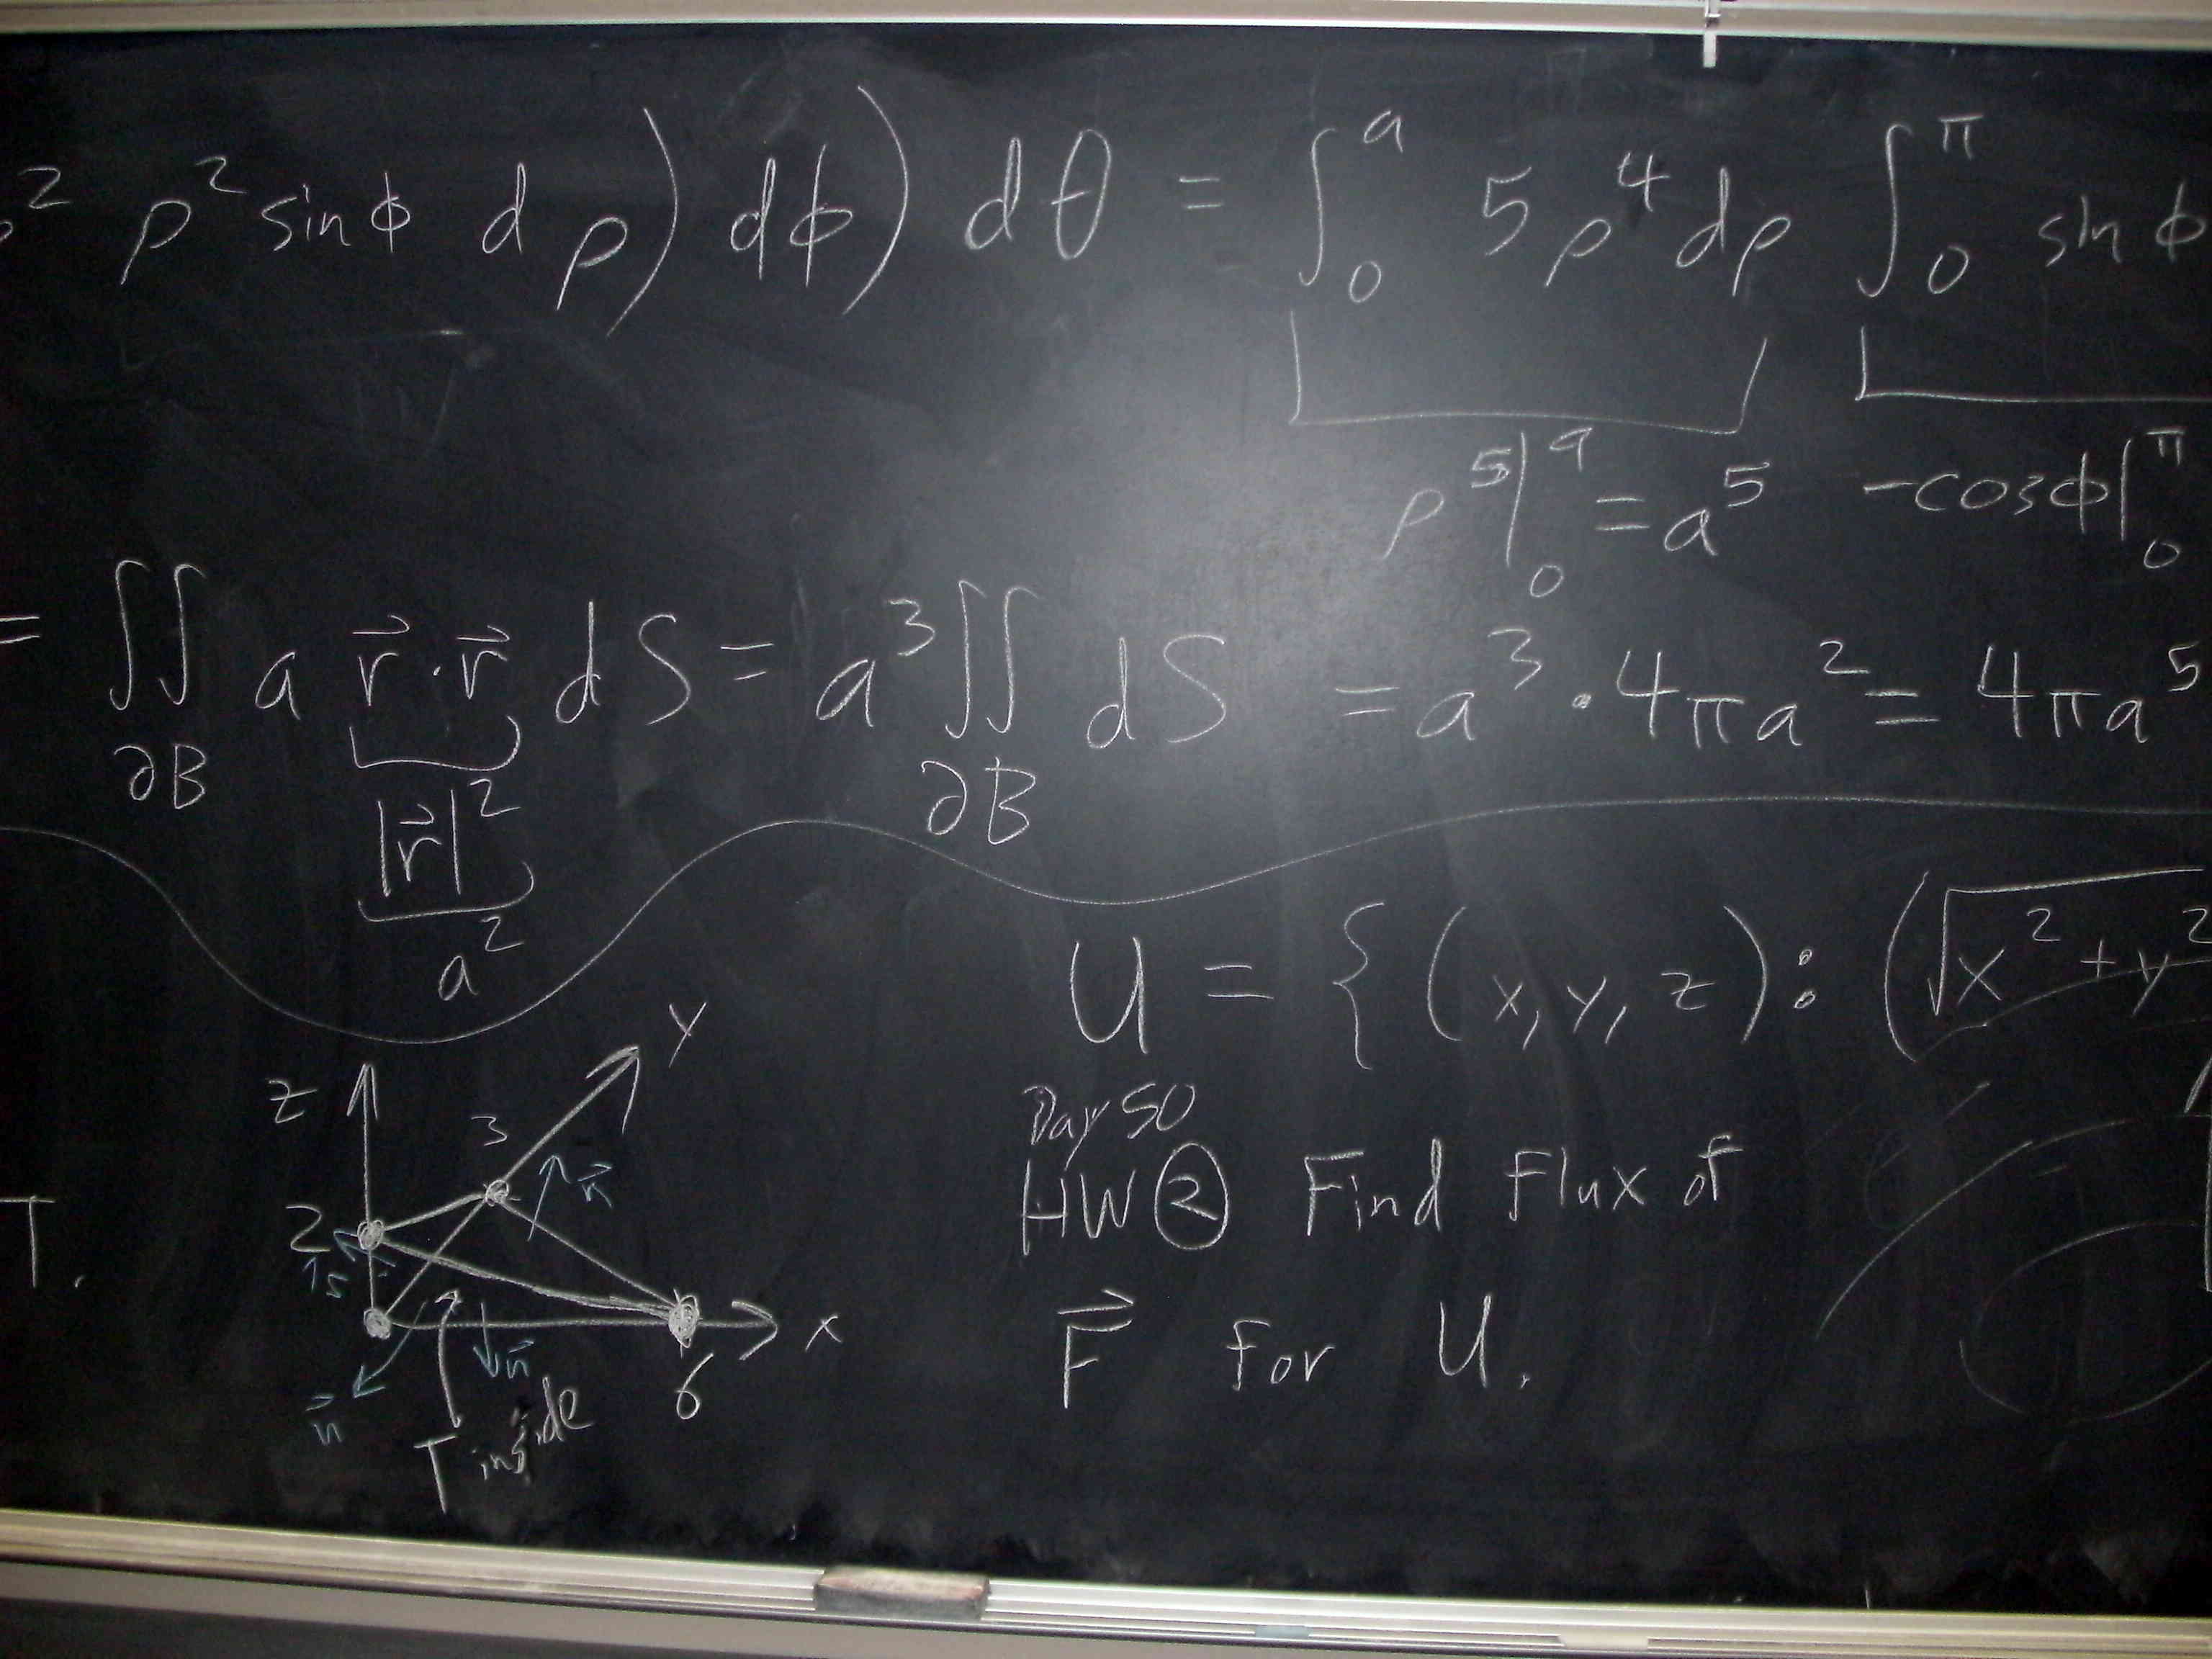 ρ² ρ² sin φ dρ) dφ) dθ = ∫₀ᵃ 5ρ⁴ dρ ∫₀^π sin φ
ρ⁵|₀ᵃ = a⁵ -cos φ|₀^π
= ∬ a r⃗·r⃗ dS = a³ ∬ dS = a³·4πa² = 4πa⁵
∂B ∂B
|r⃗|²
a²
U = {(x, y, z) : (√x² + y²
z y
3 n⃗
2
n⃗ x
n⃗ 6
T inside
T.
Day 50
HW ② Find Flux of
F⃗ for U.